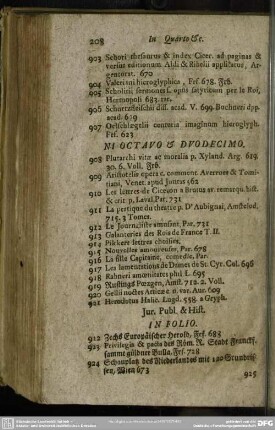 208 In Quarto &c.
903 Schori thesaurus & index Cicer. ad paginas &
versus editionum Aldi & Ribelii applicatus, Ar-
gentorat. 670
904 Valeriani hieroglyphica, Frf. 678. Frb.
905 Scholitii sermones l. ophi satyricon per le Roi,
Hermopoli 683.
906 Schurtzfleischii diss. acad. V. 699. Buchneri
acad. 619
907 Oelschlegelii centuria imaginum hieroglyph.
Frf. 623
IN OCTAVO & DVODECIMO.
908 Plutarchi vitæ ac moralia p. Xyland. Arg. 629
30. 6. Voll. Frb.
909 Aristotelis opera c. comment Averroee & Tomi-
tiani, Venet. apud Juntes 562
910 Les lettres de Ciceron a Brutus et remarqu. hist.
& crit p. Laval, Par. 731
911 La pratique du theatre p. D'Aubignai, Amstelod.
715. 3 Tomes.
912 Le Journaliste amusant, Par. 731
913 Galanteries des Rois de France T II.
914 Pikkere lettres choisies,
915 Nouvelles amoureuses, Par. 678
916 La fille Capitaine, comedie, Par.
917 Les lamentations de Dames de St. Cyr. Col. 698
918 Rabneri amœnitates phil L. 695
919 Rustlings Pœzgen, Amst. 712. 2. Voll.
920 Gellii noctes Atticæ c. var. Aur. 609
921 Herodotus Halic. Lugd. 558. a Gryph.
Jur. Publ. & Hist.
IN FOLIO.
922 Zechs Europäischer Herold, Frf. 688
923 Privilegia & pacta des Röm. R. Stadt Franckf.
samme güldner Bulla, Frf. 728
924 Schauplatz des Niederlandes mit 120 Grundris-
sen, Wien 673
925